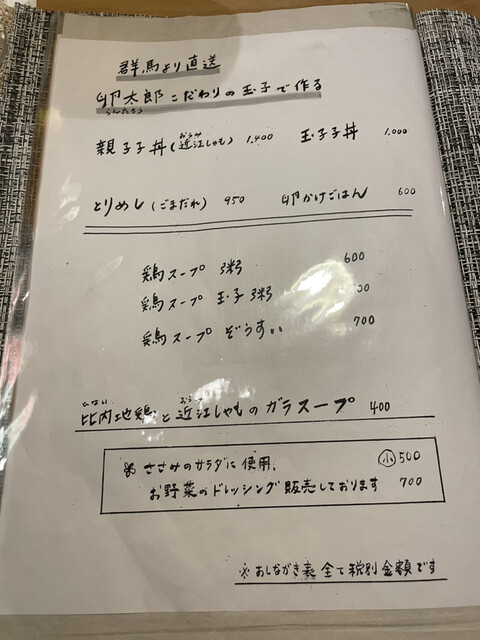 群馬より直送
卵太郎こだわりの玉子で作る
らんたろう
親子丼(近江しゃも) 1,400 玉子丼 1,000
おうみ
とりめし(ごまだれ) 950 卵かけごはん 600
鶏スープ 粥 600
鶏スープ 玉子粥
鶏スープ ぞうすい 700
ひない おうみ
比内地鶏と近江しゃものガラスープ 400
ささみのサラダに使用、 小 500
お野菜のドレッシング販売しております 700
※おしながき表 全て税別金額です